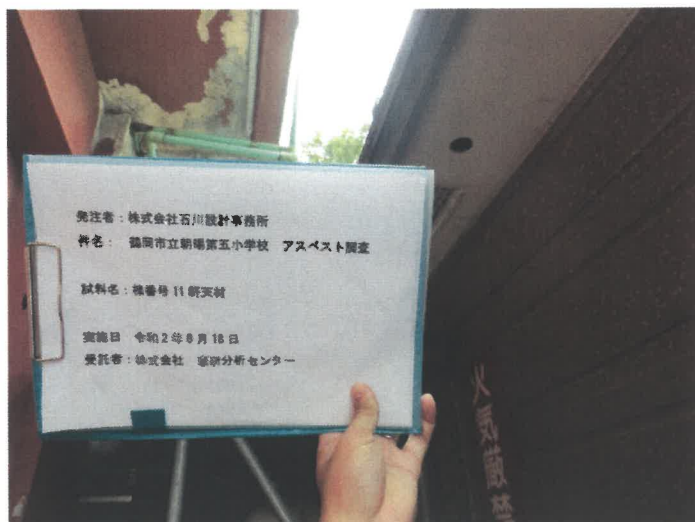 発注者：株式会社石川設計事務所
件名：　鶴岡市立朝暘第五小学校　アスベスト調査
試料名：検番号11軒天材
実施日　令和2年8月18日
受託者：株式会社　分析センター
火気厳禁